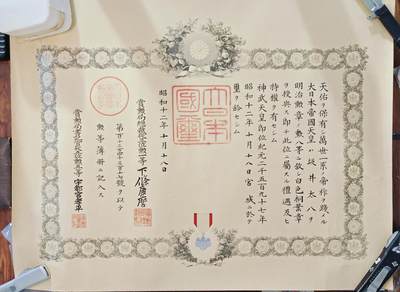 天佑ヲ保有シ萬世一系ノ帝祚ヲ踐メル
大日本帝國天皇ハ坂井太八ヲ
明治勲章ノ勲八等ニ敍シ白色桐葉章
ヲ授與ス即チ此位ニ屬スル禮遇及ヒ
特權ヲ有セシム
神武天皇即位紀元二千五百九十七年
昭和十二年十月十八日宮城ニ於テ
璽ヲ鈐セシム
大日本國璽
昭和十二年十月十八日
賞勲局總裁 勲一等下條康麿
號ヲ以テ
勲等簿冊ニ記入ス
賞勲局書記官 宇都宮孝平